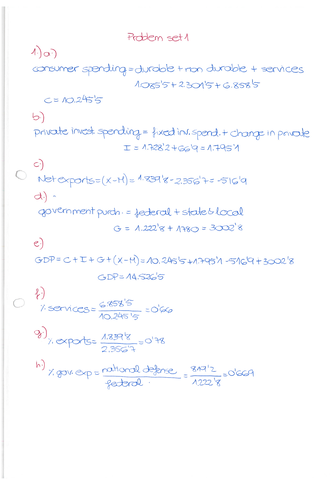 Problem set 1
1) a)
consumer spending = durable + non durable + services
1.085'5 + 2.301'5 + 6.858'5
C = 10.245'5
b)
private invest spending = fixed inv. spend. + change in private
I = 1.728'2 + 66'9 = 1.795'1
c)
Net exports = (X-M) = 1.839'8 - 2.356'7 = -516'9
d) -
government purch. = federal + state & local
G = 1.222'8 + 1780 = 3002'8
e)
GDP = C + I + G + (X-M) = 10.245'5 + 1.795'1 - 516'9 + 3002'8
GDP = 14.526'5
f)
% services = 6.858'5 / 10.245'5 = 0'66
g)
% exports = 1.839'8 / 2.356'7 = 0'78
h)
% gov. exp = national defense / federal = 819'2 / 1.222'8 = 0'669